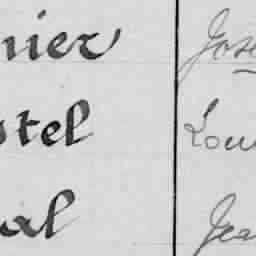 nier Jose
stel Lou
al Jea